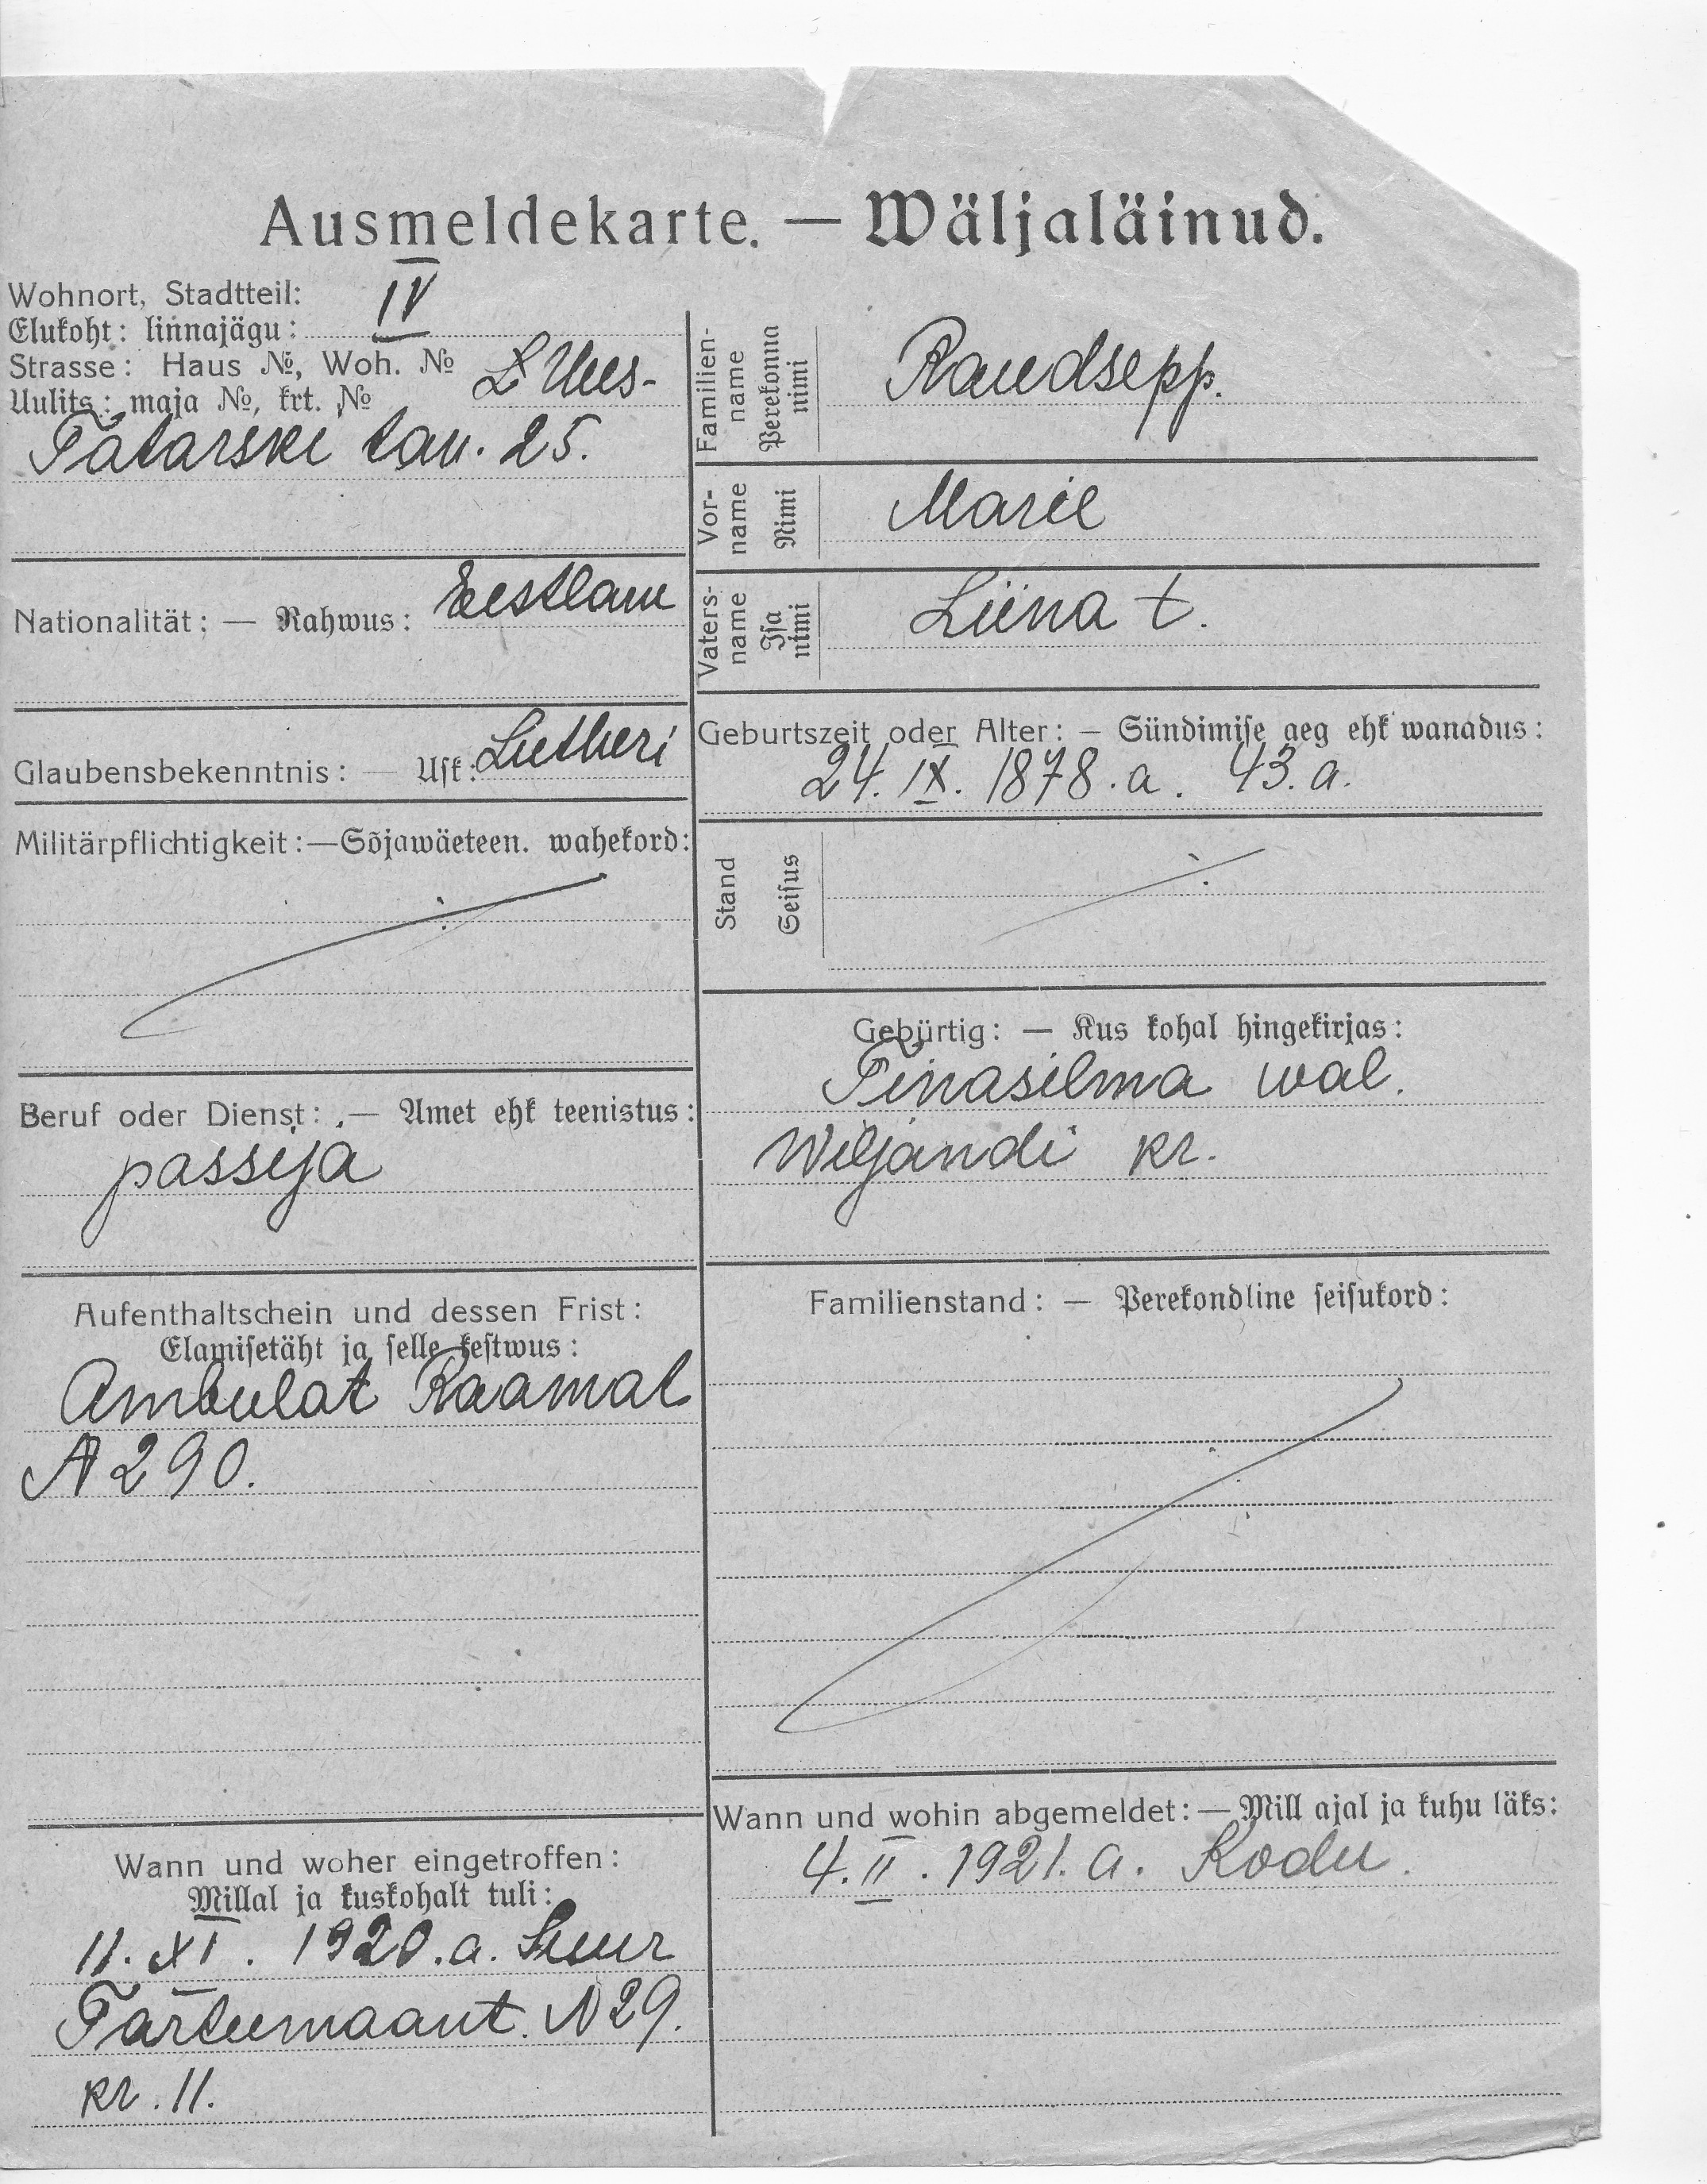 Ausmeldekarte. — Wäljaläinud.
Wohnort, Stadtteil: IV
Elukoht: linnajägu:
Strasse: Haus №, Woh. №
Uulits: maja №, krt. № Uus-
Tatarski tän. 25.
Nationalität: — Rahwus: Eestlane
Glaubensbekenntnis: — Usk: Lutheri
Militärpflichtigkeit: — Sõjawäeteen. wahekord:
Beruf oder Dienst: — Amet ehk teenistus:
passija
Aufenthaltschein und dessen Frist:
Elamisetäht ja selle kestwus:
Ambulat Raamat
№ 290.
Wann und woher eingetroffen:
Millal ja kuskohalt tuli:
11. XI. 1920. a. Suur
Tartumaant. № 29.
kr. 11.
Familien-name Perekonna nimi Raudsepp.
Vor-name Nimi Marie
Vaters-name Isa nimi Liina t.
Geburtszeit oder Alter: — Sündimise aeg ehk wanadus:
24. IX. 1878. a. 43. a.
Stand Seisus
Gebürtig: — Kus kohal hingekirjas:
Pinasilma wal.
Wiljandi kr.
Familienstand: — Perekondline seisukord:
Wann und wohin abgemeldet: — Mill ajal ja kuhu läks:
4. II. 1921. a. Kodu.